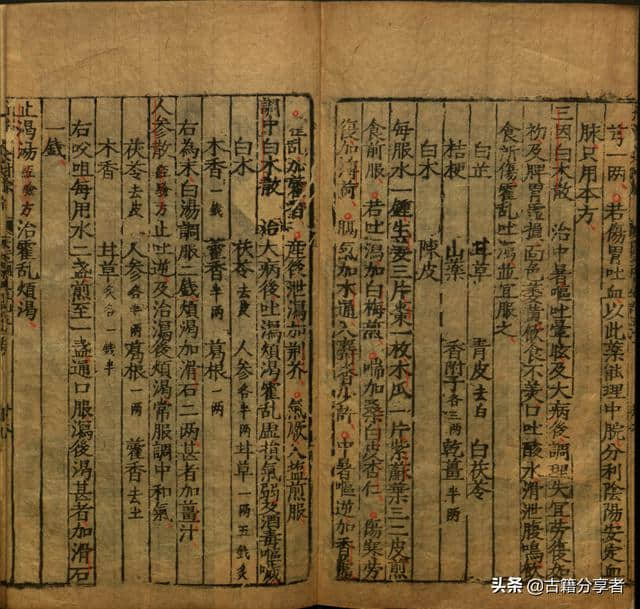 芎一两 若傷胃吐血以此藥能理中脘分利陰陽安定血
脉只用本方
三因白朮散 治中暑嘔吐暈眩及大病後調理失宜劳後如
物及脾胃虚損面色萎黄飲食不美口吐酸水滑泄腹鳴飲
食所傷霍乱吐瀉並宜服之
白芷 甘草 青皮去白 白茯苓
桔梗 山藥 香附子各三两 乾薑半两
白朮 陳皮
每服水一鍾生姜三片棗一枚木瓜一片紫蘇葉三二皮煎
食前服 若吐瀉加白梅煎 喘加桑白皮杏仁 傷寒劳
復加薄荷 膈氣加木通入麝香少許 中暑嘔逆加香薷
霍乱加藿香 産後泄瀉加荆芥 氣厥入盐煎服
調中白朮散 治大病後吐瀉煩渴霍乱虚損氣弱及酒毒嘔噦
白朮 茯苓去皮 人参各半两 甘草一两五戔炙
木香一戔 藿香半两 葛根一两
右為末白湯調服二戔煩渴加滑石二两甚者加薑汁
人参散経驗方 止吐逆及治瀉後煩渴常服調中和氣
茯苓去皮 人参各半两 葛根一两 藿香去土
木香 甘草炙各一戔半
右㕮咀每用水二盏煎至一盏通口服瀉後渴甚者加滑石
一戔
止渴湯経驗方 治霍乱煩渴
头条 @古籍分享者